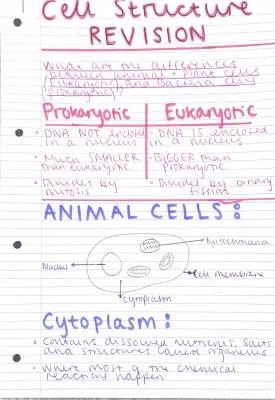 Cell Structure
REVISION
What are the differences
between animal + plant cells
(Eukaryotic) and Bacteria cells
(prokaryotic)?
Prokaryotic
Eukaryotic
DNA NOT enclosed
in a nucleus
DNA IS enclosed
in a nucleus
Much SMALLER
than eukaryotic
BIGGER than
Prokaryotic
Divides by
mitosis
Divides by binary
fission
ANIMAL CELLS:
Mitochondria
Nucleus
Cell membrane
Cytoplasm
Cytoplasm:
Contains dissolved nutrients, salts
and structures called organelles
Where most of the chemical
reactions happen